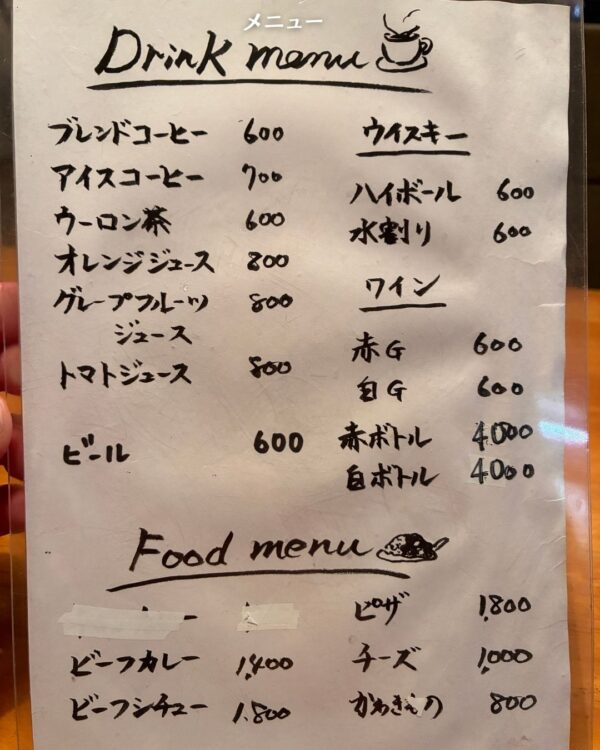 メニュー
Drink menu
ブレンドコーヒー 600
アイスコーヒー 700
ウーロン茶 600
オレンジジュース 800
グレープフルーツ 800
ジュース
トマトジュース 800
ビール 600
ウイスキー
ハイボール 600
水割り 600
ワイン
赤G 600
白G 600
赤ボトル 4000
白ボトル 4000
Food menu
ビーフカレー 1,400
ビーフシチュー 1,800
ピザ 1,800
チーズ 1,000
かわきもの 800